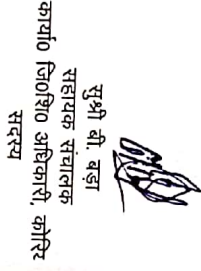 सुश्री बी. बड़ा
सहायक संचालक
कार्या० जि०शि० अधिकारी, कोरिया
सदस्य